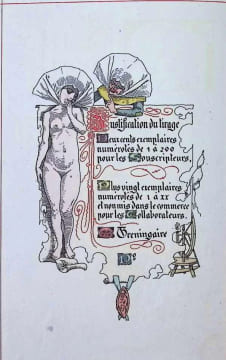 Justification du tirage
Deux cents exemplaires
numérotés de 1 à 200
pour les Souscripteurs.
Plus vingt exemplaires
numérotés de 1 à XX
et non mis dans le commerce
pour les Collaborateurs.
Greningaire
No